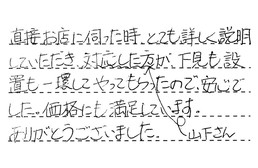 直接お店に伺った時、とても詳しく説明
していただき、対応した方が、下見も設
置も一環してやってもらったので安心で
した。価格にも満足しています。
ありがとうございました。 山下さん